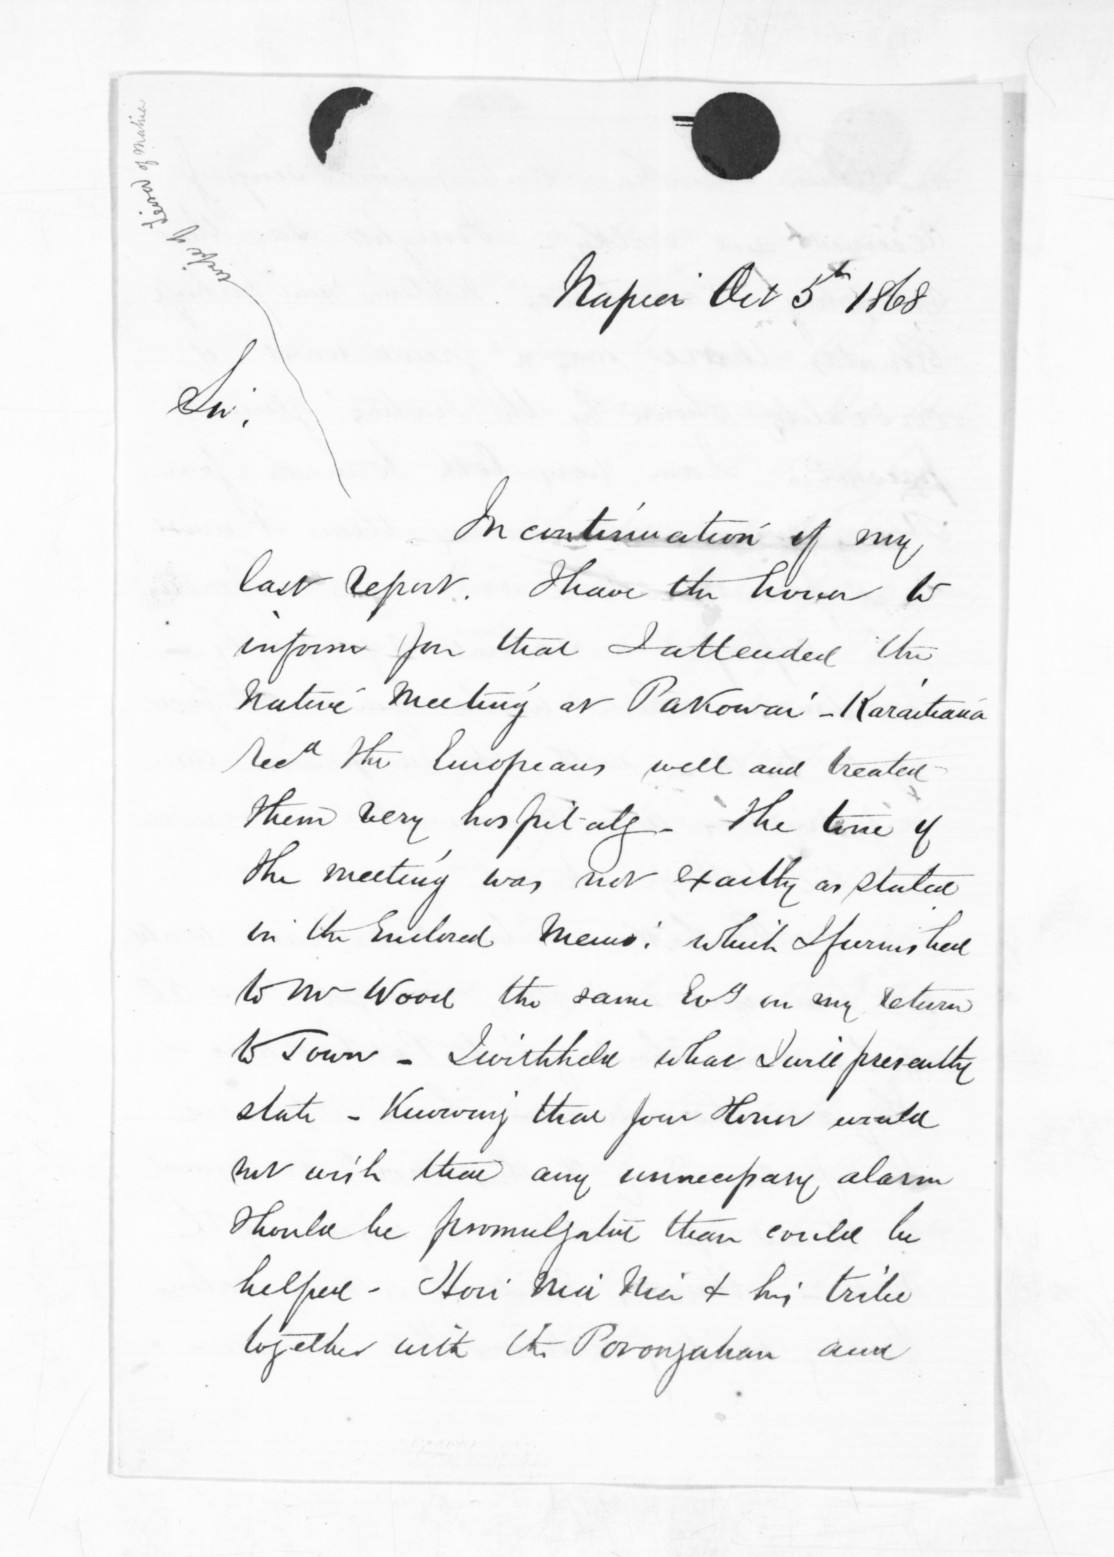 wife of Tiwai of Mahia
Napier Oct 5th 1868
Sir,
In continuation of my
last report. I have the honor to
inform you that I attended the
Native Meeting at Pakowai - Karaitiana
recd the Europeans well and treated
them very hospitaly - The tone of
the meeting was not exactly as stated
in the Enclosed Memo: which I furnished
to Mr Wood the same Evg on my return
to Town - I withheld what I will presently
state - Knowing that your Honor would
not wish that any unnecessary alarm
should be promulgated than could be
helped - Hori Nia Nia & his tribe
together with the Porongahau and